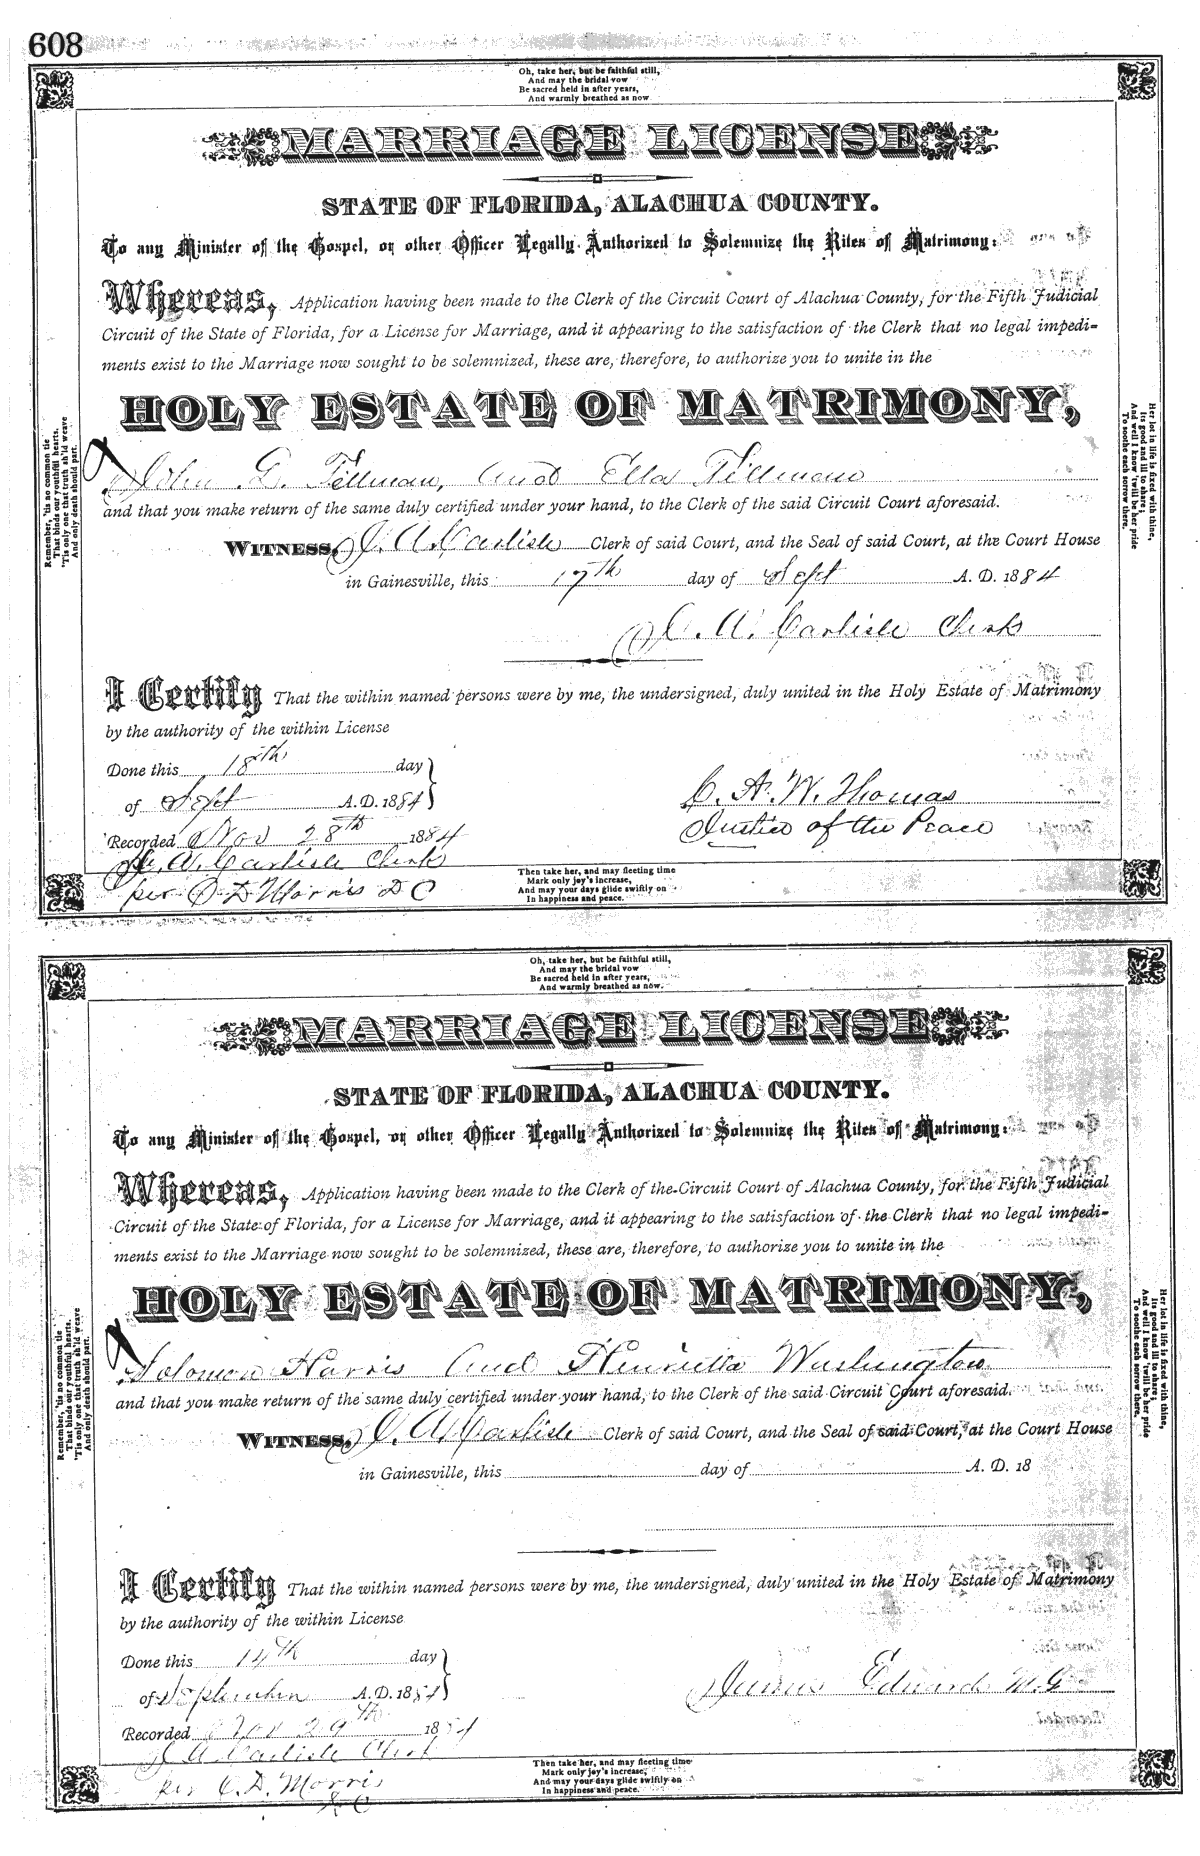 608
Oh, take her, but be faithful still,
And may the bridal vow
Be sacred held in after years,
And warmly breathed as now
MARRIAGE LICENSE
STATE OF FLORIDA, ALACHUA COUNTY.
To any Minister of the Gospel, or other Officer Legally Authorized to Solemnize the Rites of Matrimony:
Whereas, Application having been made to the Clerk of the Circuit Court of Alachua County, for the Fifth Judicial
Circuit of the State of Florida, for a License for Marriage, and it appearing to the satisfaction of the Clerk that no legal impedi-
ments exist to the Marriage now sought to be solemnized, these are, therefore, to authorize you to unite in the
HOLY ESTATE OF MATRIMONY,
John G. Tillman, and Ella Tillman
and that you make return of the same duly certified under your hand, to the Clerk of the said Circuit Court aforesaid.
WITNESS, J. A. Carlisle Clerk of said Court, and the Seal of said Court, at the Court House
in Gainesville, this 17th day of Sept A. D. 1884
J. A. Carlisle Clerk
I Certify That the within named persons were by me, the undersigned, duly united in the Holy Estate of Matrimony
by the authority of the within License
Done this 18th day
of Sept A.D. 1884
C. A. W. Thomas
Justice of the Peace
Recorded Nov 28th 1884
J. A. Carlisle Clerk
per C D Morris D C
Remember, 'tis no common tie
That binds our youthful hearts,
'Tis only one that truth sh'ld weave
And only death should part.
Her lot in life is fixed with thine,
Its good and ill to share;
And well I know 'twill be her pride
To soothe each sorrow there.
Then take her, and may fleeting time
Mark only joy's increase,
And may your days glide swiftly on
In happiness and peace.
Oh, take her, but be faithful still,
And may the bridal vow
Be sacred held in after years,
And warmly breathed as now.
MARRIAGE LICENSE
STATE OF FLORIDA, ALACHUA COUNTY.
To any Minister of the Gospel, or other Officer Legally Authorized to Solemnize the Rites of Matrimony:
Whereas, Application having been made to the Clerk of the Circuit Court of Alachua County, for the Fifth Judicial
Circuit of the State of Florida, for a License for Marriage, and it appearing to the satisfaction of the Clerk that no legal impedi-
ments exist to the Marriage now sought to be solemnized, these are, therefore, to authorize you to unite in the
HOLY ESTATE OF MATRIMONY,
Solomon Harris and Henrietta Washington
and that you make return of the same duly certified under your hand, to the Clerk of the said Circuit Court aforesaid.
WITNESS, J. A. Carlisle Clerk of said Court, and the Seal of said Court, at the Court House
in Gainesville, this day of A. D. 18
I Certify That the within named persons were by me, the undersigned, duly united in the Holy Estate of Matrimony
by the authority of the within License
Done this 14th day
of September A.D. 1884
Junius Edward M.G.
Recorded Nov 29th 1884
J A Carlisle Clerk
per C. D. Morris
D C
Remember, 'tis no common tie
That binds our youthful hearts,
'Tis only one that truth sh'ld weave
And only death should part.
Her lot in life is fixed with thine,
Its good and ill to share;
And well I know 'twill be her pride
To soothe each sorrow there.
Then take her, and may fleeting time
Mark only joy's increase,
And may your days glide swiftly on
In happiness and peace.